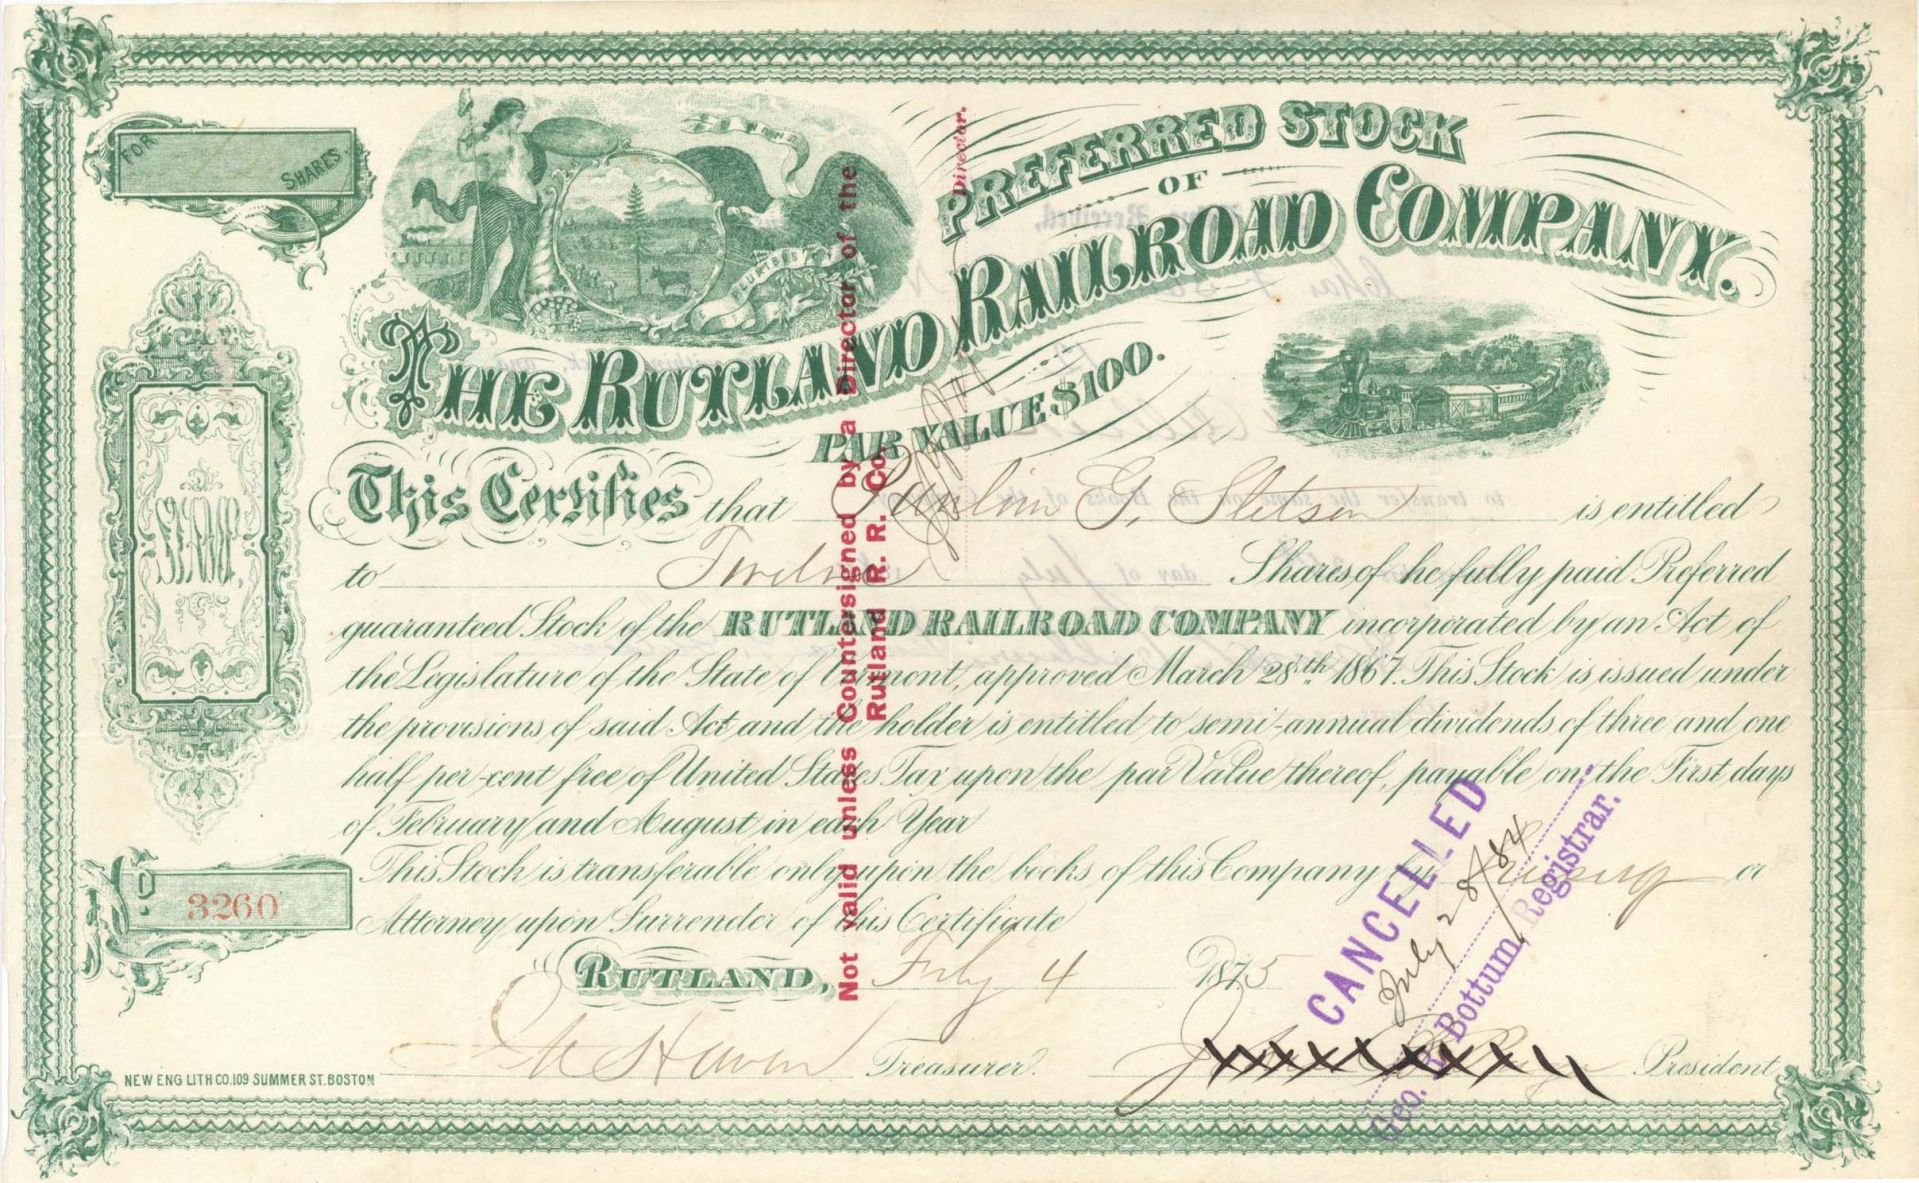 FOR
SHARES.
E PLURIBUS
PREFERRED STOCK
OF
THE RUTLAND RAILROAD COMPANY.
PAR VALUE $100.
This Certifies that G. Stetson is entitled
to Twelve Shares of he fully paid Preferred
guaranteed Stock of the RUTLAND RAILROAD COMPANY incorporated by an Act of
the Legislature of the State of Vermont, approved March 28th 1867. This Stock is issued under
the provisions of said Act and the holder is entitled to semi-annual dividends of three and one
half per-cent free of United States Tax upon the par Value thereof, payable on the First days
of February and August in each Year
This Stock is transferable only upon the books of this Company in or
Attorney upon Surrender of this Certificate
No
3260
RUTLAND, July 4 1875
Haven Treasurer.
President
NEW ENG LITH CO. 109 SUMMER ST. BOSTON
Not valid unless Countersigned by a Director of the
Rutland R. R. Co.
Director.
CANCELLED
July 28/84
Geo. R. Bottum, Registrar.